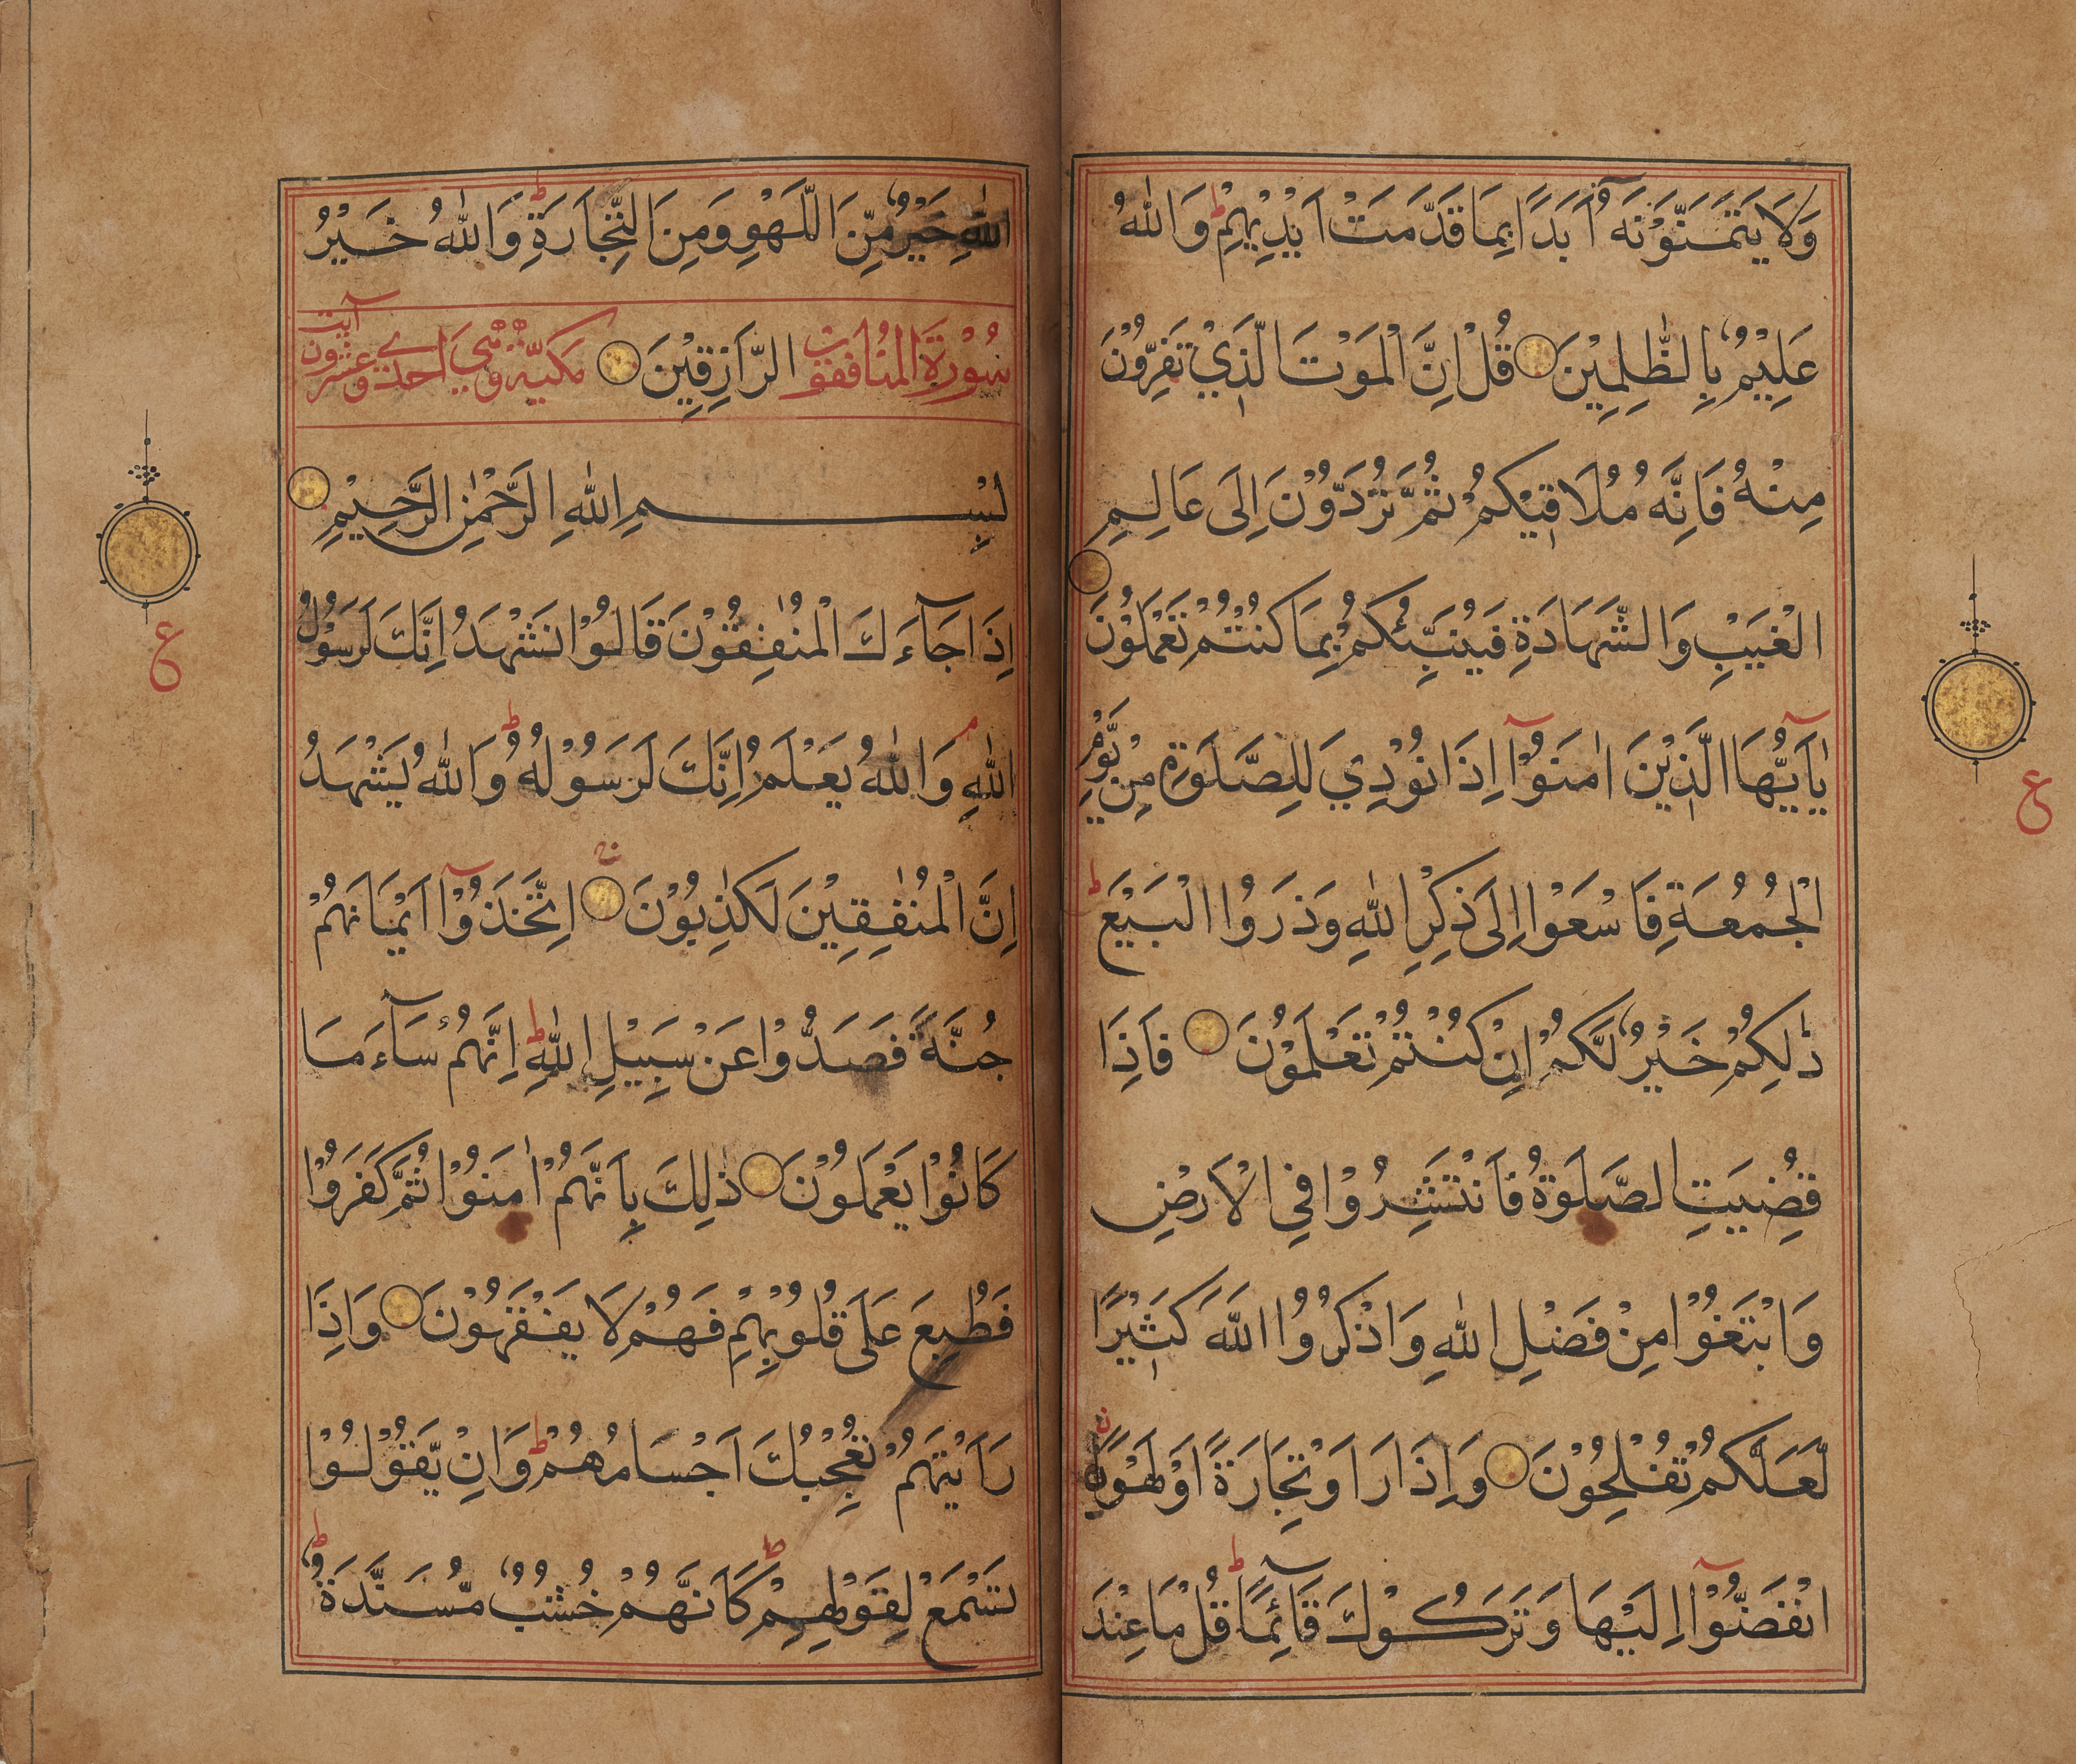 وَلَا يَتَمَنَّوْنَهٗٓ اَبَدًا بِمَا قَدَّمَتْ اَيْدِيْهِمْ ط وَاللّٰهُ
عَلِيْمٌ بِالظّٰلِمِيْنَ قُلْ اِنَّ الْمَوْتَ الَّذِيْ تَفِرُّوْنَ
مِنْهُ فَاِنَّهٗ مُلَاقِيْكُمْ ثُمَّ تُرَدُّوْنَ اِلَى عَالِمِ
الْغَيْبِ وَالشَّهَادَةِ فَيُنَبِّئُكُمْ بِمَا كُنْتُمْ تَعْمَلُوْنَ
يٰٓاَيُّهَا الَّذِيْنَ اٰمَنُوْٓا اِذَا نُوْدِيَ لِلصَّلَوٰةِ مِنْ يَّوْمِ
الْجُمُعَةِ فَاسْعَوْا اِلَى ذِكْرِ اللّٰهِ وَذَرُوا الْبَيْعَ ط
ذٰلِكُمْ خَيْرٌ لَّكُمْ اِنْ كُنْتُمْ تَعْلَمُوْنَ فَاِذَا
قُضِيَتِ الصَّلَوٰةُ فَانْتَشِرُوْا فِي الْاَرْضِ
وَابْتَغُوْا مِنْ فَضْلِ اللّٰهِ وَاذْكُرُوا اللّٰهَ كَثِيْرًا
لَّعَلَّكُمْ تُفْلِحُوْنَ وَاِذَا رَاَوْ تِجَارَةً اَوْ لَهْوًا
انْفَضُّوْٓا اِلَيْهَا وَتَرَكُوْكَ قَآئِمًا ط قُلْ مَا عِنْدَ
ع
اللّٰهِ خَيْرٌ مِّنَ اللَّهْوِ وَمِنَ التِّجَارَةِ ط وَاللّٰهُ خَيْرُ
سُوْرَةُ الْمُنَافِقُوْنَ الرَّازِقِيْنَ مَكِيَّة وَهِيَ احدے وعشرون آيت
بِسْمِ اللّٰهِ الرَّحْمٰنِ الرَّحِيْمِ
اِذَا جَآءَكَ الْمُنٰفِقُوْنَ قَالُوْا نَشْهَدُ اِنَّكَ لَرَسُوْلُ
اللّٰهِ م وَاللّٰهُ يَعْلَمُ اِنَّكَ لَرَسُوْلُهٗ ط وَاللّٰهُ يَشْهَدُ
اِنَّ الْمُنٰفِقِيْنَ لَكٰذِبُوْنَ اِتَّخَذُوْٓا اَيْمَانَهُمْ
جُنَّةً فَصَدُّوْا عَنْ سَبِيْلِ اللّٰهِ ط اِنَّهُمْ سَآءَ مَا
كَانُوْا يَعْمَلُوْنَ ذٰلِكَ بِاَنَّهُمْ اٰمَنُوْا ثُمَّ كَفَرُوْا
فَطُبِعَ عَلَى قُلُوْبِهِمْ فَهُمْ لَا يَفْقَهُوْنَ وَاِذَا
رَاَيْتَهُمْ تُعْجِبُكَ اَجْسَامُهُمْ ط وَاِنْ يَّقُوْلُوْا
تَسْمَعْ لِقَوْلِهِمْ ط كَاَنَّهُمْ خُشُبٌ مُّسَنَّدَةٌ ط
ع